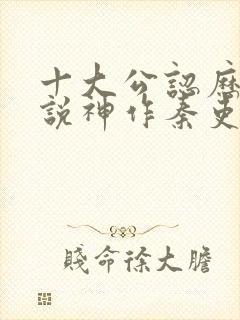 十大公認歷
說神作秦吏
賤命徐大膽